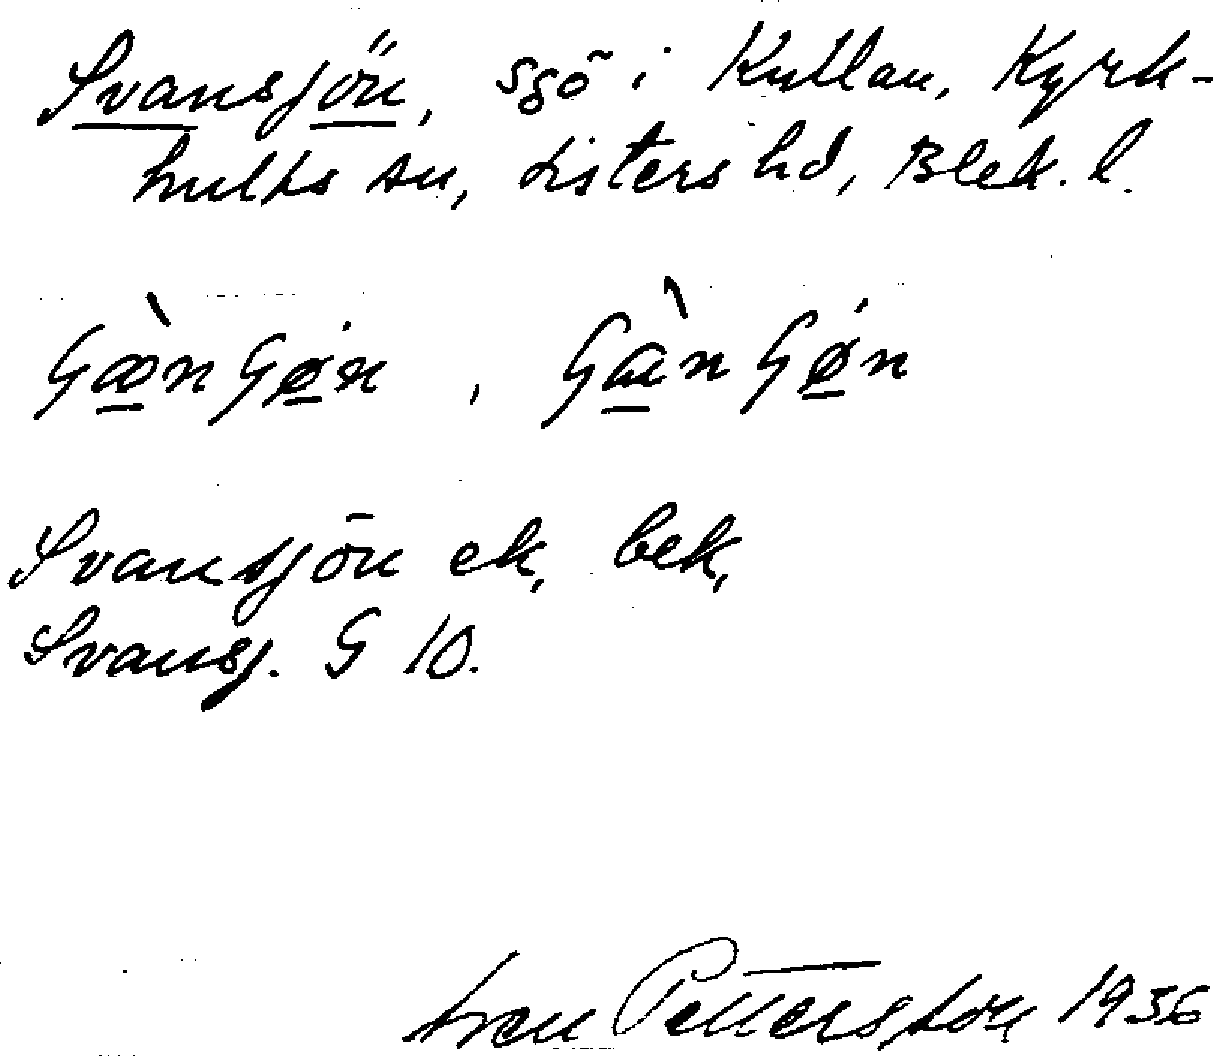 Svansjön, sjö i Kullan, Kyrk-
hults sn, Listers hd, Blek. l.
Svansjön ek. bek.
Svansj. G 10.
Sven Pettersson 1936